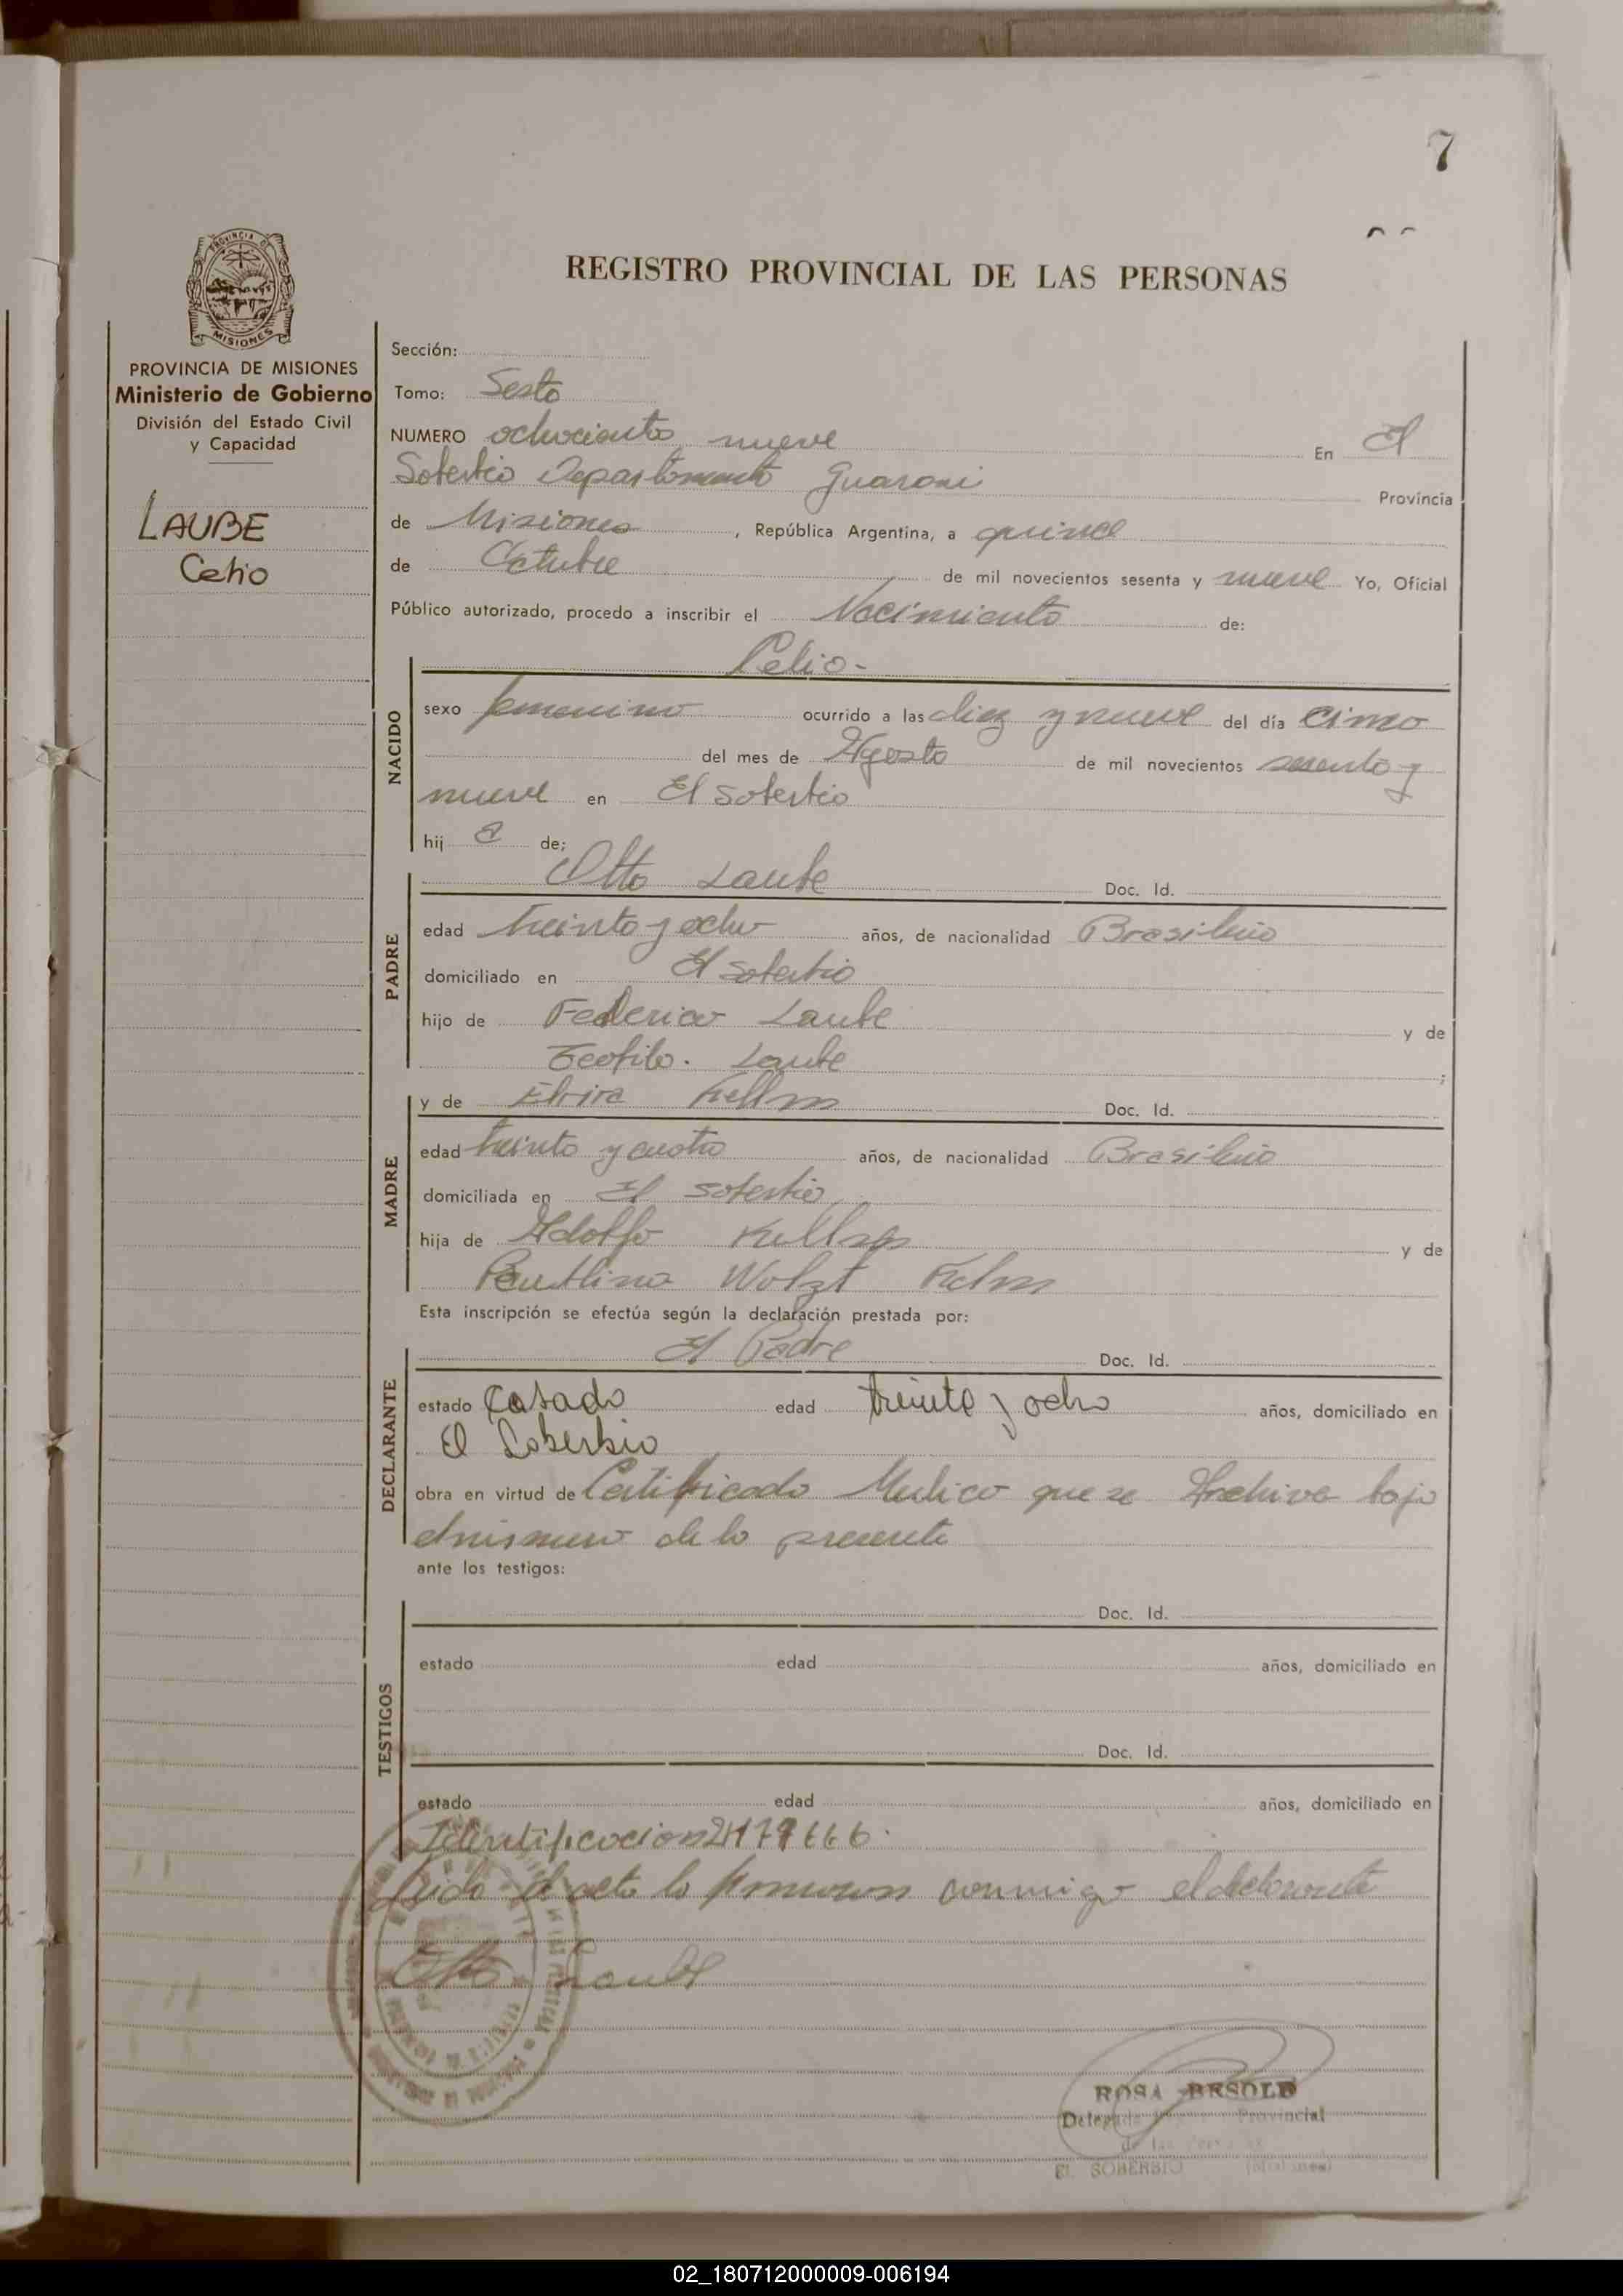 7
REGISTRO PROVINCIAL DE LAS PERSONAS
PROVINCIA DE MISIONES
PROVINCIA DE MISIONES
Ministerio de Gobierno
División del Estado Civil
y Capacidad
LAUBE
Celio
Sección:
Tomo: Sesto
NUMERO ochocientos nueve En El
Soberbio Departamento Guarani Provincia
de Misiones, República Argentina, a quince
de Octubre de mil novecientos sesenta y nueve Yo, Oficial
Público autorizado, procedo a inscribir el Nacimiento de:
Celio-
NACIDO
sexo femenino ocurrido a las diez y nueve del día cinco
del mes de Agosto de mil novecientos sesenta y
nueve en El Soberbio
hij a de;
Otto Laube Doc. Id.
PADRE
edad treinta y ocho años, de nacionalidad Brasileño
domiciliado en El Soberbio
hijo de Federico Laube y de
Teofila. Laube ;
y de Elvira Doc. Id.
MADRE
edad treinta y cuatro años, de nacionalidad Brasileña
domiciliada en El Soberbio
hija de Adolfo y de
Wolzt
Esta inscripción se efectúa según la declaración prestada por:
El Padre Doc. Id.
DECLARANTE
estado Casado edad treinta y ocho años, domiciliado en
El Soberbio
obra en virtud de Certificado Medico que se Archiva bajo
el numero de la presente
ante los testigos:
Doc. Id.
TESTIGOS
estado edad años, domiciliado en
Doc. Id.
estado edad años, domiciliado en
Identificacion
Leida el acta la firmaron conmigo el declarante
Otto Laube
ROSA BESOLD
Delegada Provincial
EL SOBERBIO (Misiones)
02_180712000009-006194